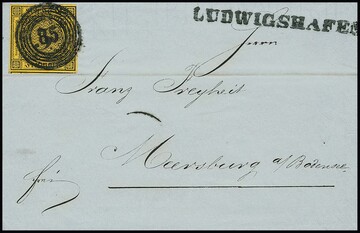 LUDWIGSHAFEN
85
Herrn
Franz Freyheit
Meersburg a/Bodensee
frei